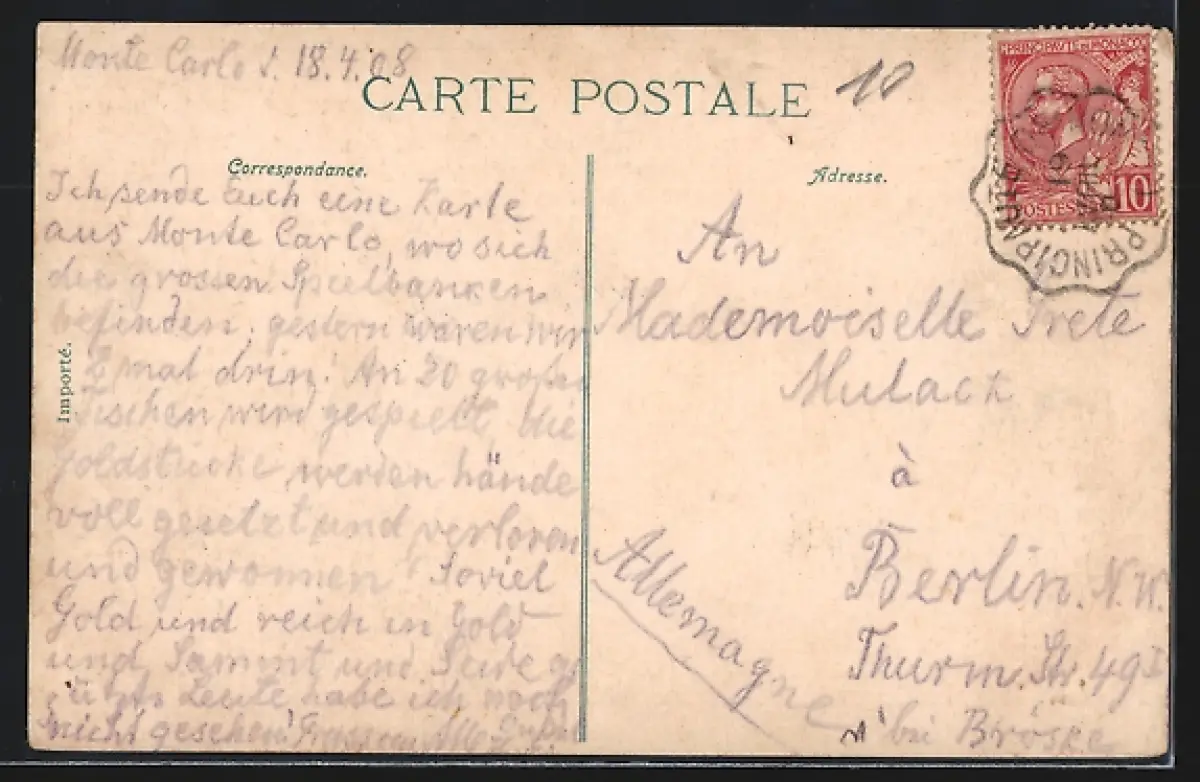 Monte Carlo d. 18.4.08
CARTE POSTALE
10
PRINCIPAUTÉ DE MONACO
POSTES
10
PRINCIPAUTE
Correspondance.
Adresse.
Importé.
Ich sende Euch eine Karte
aus Monte Carlo, wo sich
die grossen Spielbanken
befinden, gestern waren wir
2 mal drin! An 20 großen
Tischen wird gespielt, die
Goldstücke werden hände
voll gesetzt und verloren
und gewonnen Soviel
Gold und reich in Gold
und Sammt und Seide
Leute habe ich noch
nicht gesehen! Gruss an Alle
An
Mademoiselle Grete
Mulack
à
Berlin. N.W.
Thurm. Str. 49 I
bei Bröske
Allemagne